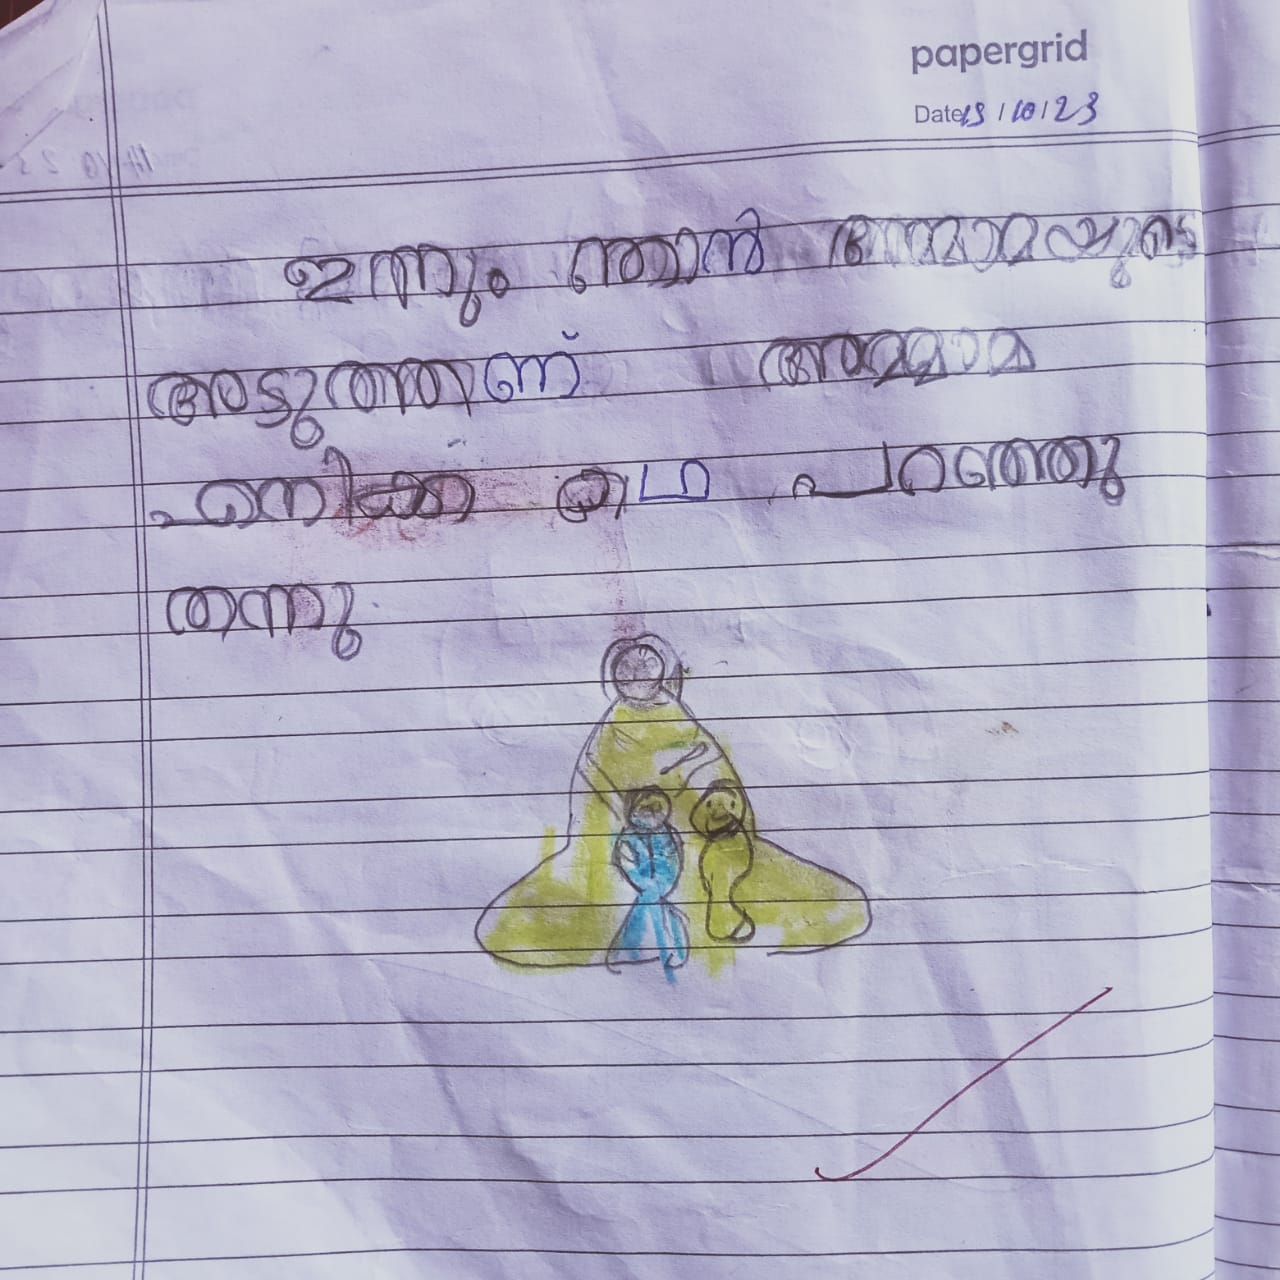 papergrid
Date 13/10/23
ഇന്നും ഞാൻ അമ്മാമ്മയുടെ
അടുത്താണ് അമ്മാമ
എനിക്ക് കഥ പറഞ്ഞു
തന്നു